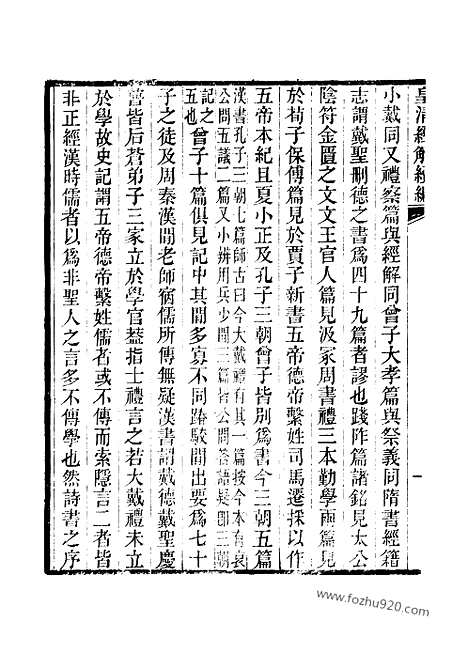 皇清經解續編
小戴同又禮察篇與經解同曾子大孝篇與祭義同隋書經籍
志謂戴聖刪德之書爲四十九篇者謬也踐阼篇諸銘見太公
陰符金匱之文文王官人篇見汲冢周書禮三本勸學兩篇見
於荀子保傅篇見於賈子新書五帝德帝繫姓司馬遷採以作
五帝本紀且夏小正及孔子三朝曾子皆別爲書今三朝五篇
漢書孔子三朝七篇師古曰今大戴禮有其一篇按今本有哀
公問五議二篇又小辨用兵少閒三篇皆公問答語疑卽三朝
記之
五也曾子十篇俱見記中其閒多寡不同踳駮間出要爲七十
子之徒及周秦漢間老師宿儒所傳無疑漢書謂戴德戴聖慶
普皆后蒼弟子三家立於學官葢指士禮言之若大戴禮未立
於學故史記謂五帝德帝繫姓儒者或不傳而索隱言二者皆
非正經漢時儒者以爲非聖人之言多不傳學也然詩書之序
一
www.fozhu920.com